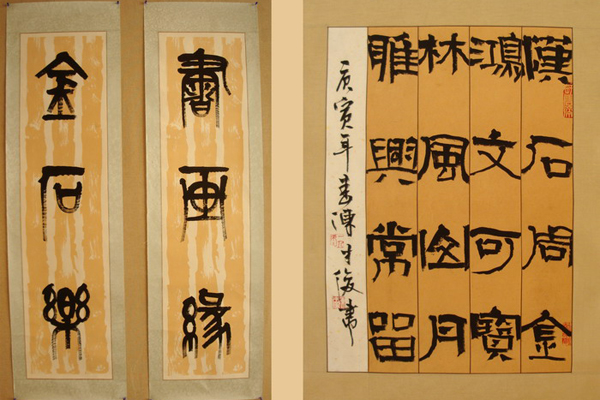 書画緣
金石樂
漢石周金
鴻文可寶
林風山月
雅興常留
庚寅年春陳才俊書